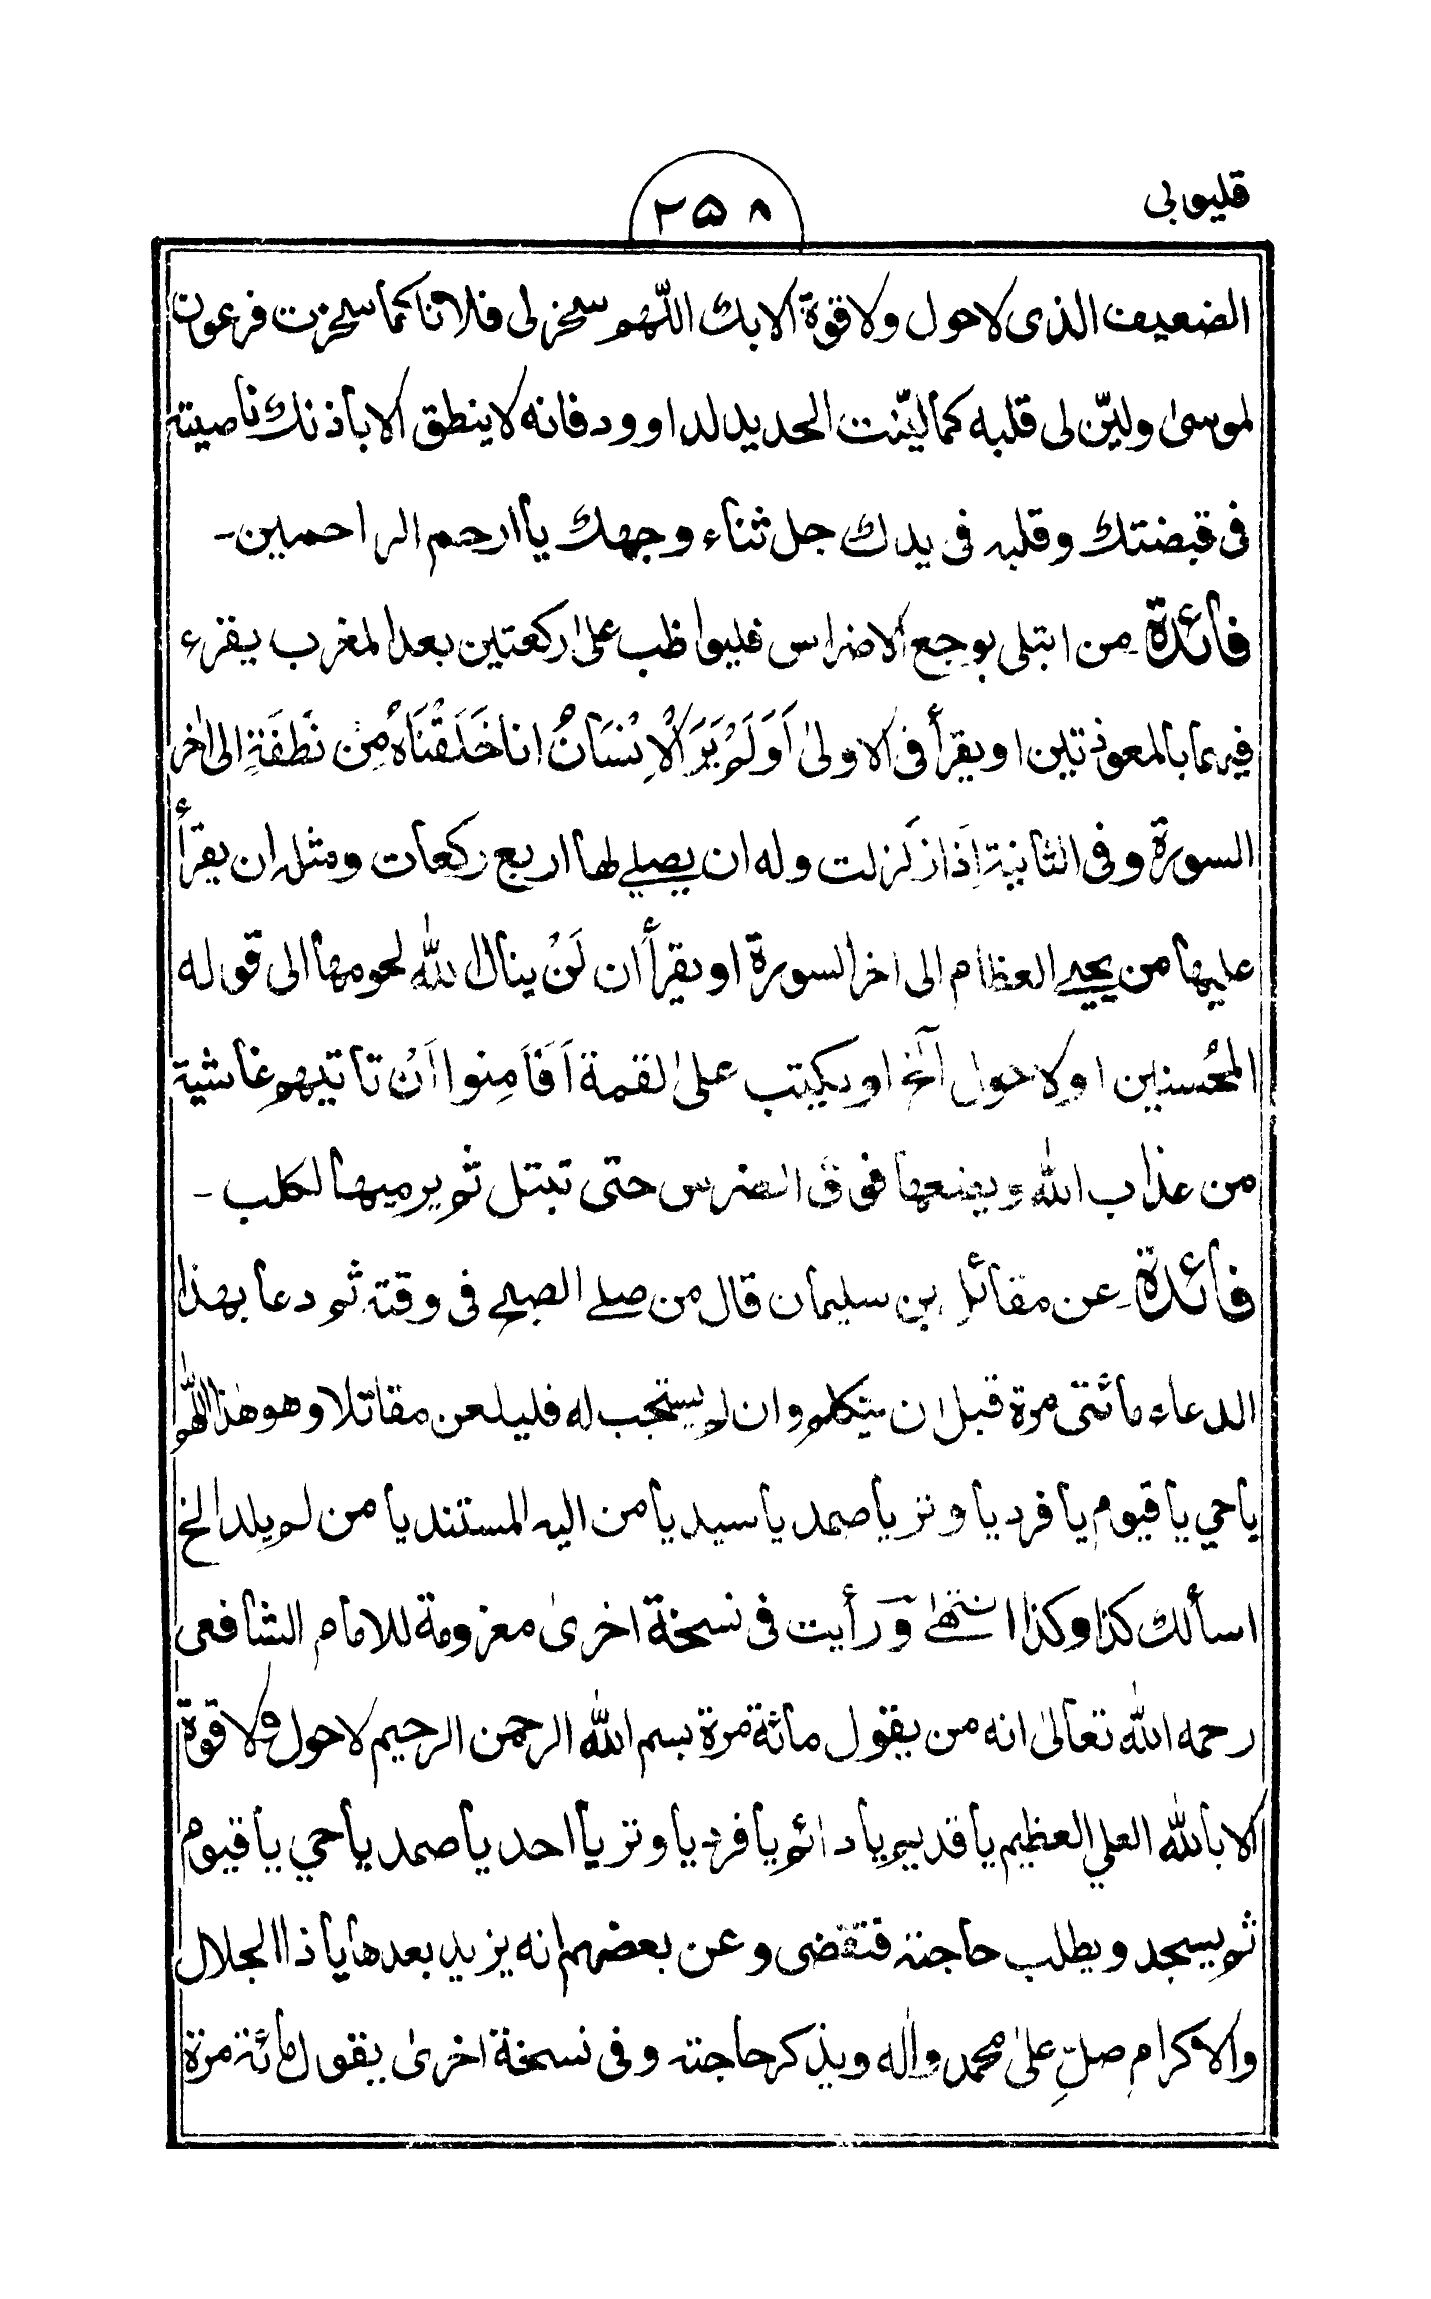 قليوبى
۲۵۸
الضعيف الذى لا حول ولا قوة الا بك اللّٰهم سخر لى فلانا كما سخرت فرعون
لموسىٰ وليّن لى قلبه كما ليّنت الحديد لداوود فانه لا ينطق الا باذنك ناصيته
فى قبضتك وقلبه فى يدك جل ثناء وجهك يا ارحم الراحمين۔
فائدة۔ من ابتلى بوجع الاضراس فليواظب علىٰ ركعتين بعد المغرب يقرء
فيهما بالمعوذتين او يقرأ فى الاولىٰ اَوَلَمْ يَرَ الْاِنْسَانُ انا خَلَقْنَاهُ مِنْ نُطْفَةٍ الى اٰخر
السورة وفى الثانية اِذَا زلزلت وله ان يصلے لها اربع ركعات ومثله ان يقرأ
عليها من يحيے العظام الى اخر السورة او يقرأ ان لَنْ ينال اللّٰه لحومها الى قوله
المحُسنين او لا حول آلخ او يكتب علىٰ لقمة اَفَاَمِنوا اَنْ تاتيهم غاشية
من عذاب اللّٰه ويضعها فوق الضرس حتى تبتل ثم يرميها لكلب۔
فائدة۔ عن مقاتل بن سليمان قال من صلے الصبح فى وقته ثم دعا بهذا
الدعاء مائتى مرة قبل ان يتكلم وان لم يستجب له فليلعن مقاتلا وهو هٰذا اللّٰهم
يا حي يا قيوم يا فرد يا وتر يا صمد يا سيد يا من اليه المستند يا من لم يلد الخ
اسألك كذا وكذا انتهٰے وَرأيت فى نسخة اخرىٰ معزومة للامام الشافعى
رحمه اللّٰه تعالىٰ انه من يقول مائة مرة بسم اللّٰه الرحمن الرحيم لا حول ولا قوة
الا باللّٰه العلي العظيم يا قديم يا دائم يا فرد يا وتر يا احد يا صمد يا حي يا قيوم
ثم يسجد ويطلب حاجته فتقضى وعن بعضهم انه يزيد بعدها يا ذا الجلال
والاكرام صلِّ علىٰ محمد واٰله ويذكر حاجته وفى نسخة اخرىٰ يقول مائة مرة